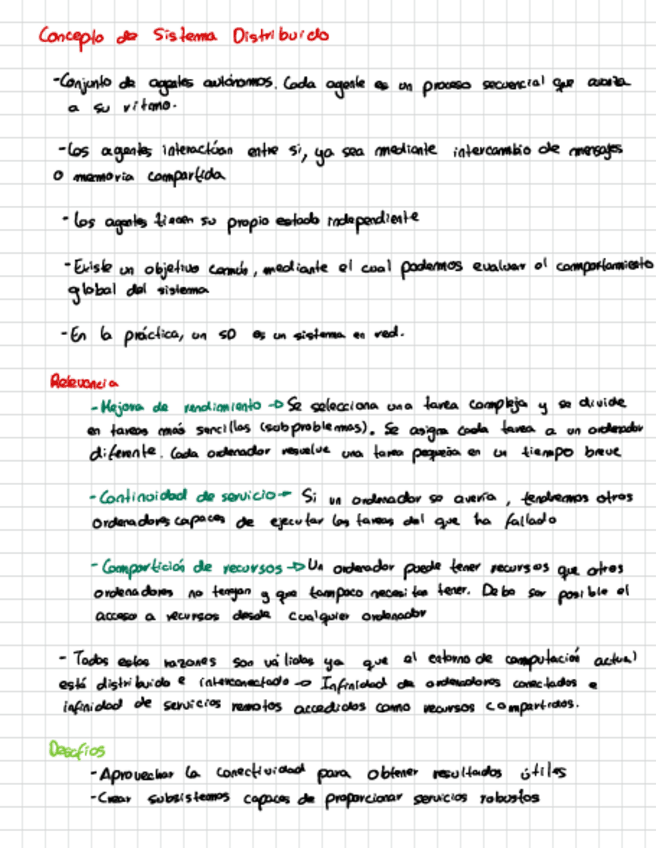 Concepto de Sistema Distribuido
-Conjunto de agentes autónomos. Cada agente es un proceso secuencial que avanza
a su ritmo.
-Los agentes interactúan entre sí, ya sea mediante intercambio de mensajes
o memoria compartida
-Los agentes tienen su propio estado independiente
-Existe un objetivo común, mediante el cual podemos evaluar el comportamiento
global del sistema
-En la práctica, un SD es un sistema en red.
Relevancia
-Mejora de rendimiento → Se selecciona una tarea compleja y se divide
en tareas más sencillas (subproblemas). Se asigna cada tarea a un ordenador
diferente. Cada ordenador resuelve una tarea pequeña en un tiempo breve
-Continuidad de servicio → Si un ordenador se avería, tendremos otros
ordenadores capaces de ejecutar las tareas del que ha fallado
-Compartición de recursos → Un ordenador puede tener recursos que otros
ordenadores no tengan y que tampoco necesitan tener. Debe ser posible el
acceso a recursos desde cualquier ordenador
- Todas estas razones son válidas ya que el entorno de computación actual
está distribuido e interconectado → Infinidad de ordenadores conectados e
infinidad de servicios remotos accedidos como recursos compartidos.
Desafíos
-Aprovechar la conectividad para obtener resultados útiles
-Crear subsistemas capaces de proporcionar servicios robustos